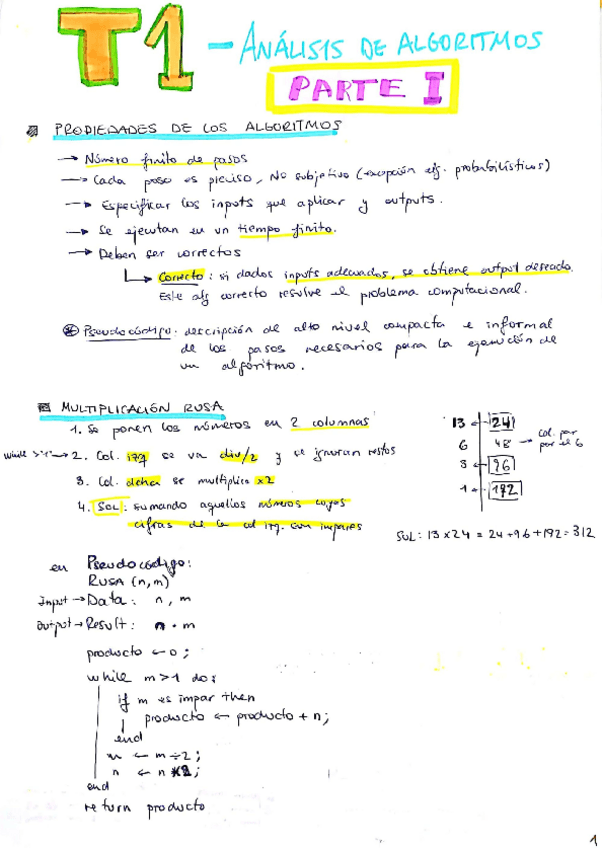 T1 - ANÁLISIS DE ALGORITMOS
PARTE I
PROPIEDADES DE LOS ALGORITMOS
→ Número finito de pasos
→ Cada paso es preciso, No subjetivo (excepción ejs. probabilísticos)
→ Especificar los inputs que aplicar y outputs.
→ Se ejecutan en un tiempo finito.
→ Deben ser correctos
Correcto: si dados inputs adecuados, se obtiene output deseado.
Este alg correcto resolve el problema computacional.
Pseudocódigo: descripción de alto nivel compacta e informal
de los pasos necesarios para la ejecución de
un algoritmo.
MULTIPLICACIÓN RUSA
1. Se ponen los números en 2 columnas
while >1 → 2. Col. izq se va div/2 y se ignoran restos
3. Col. dcha se multiplica x2
4. SOL: sumando aquellos números cuyas
cifras de la col izq. son impares
13 ← 24
6 48 → col. par
por el 6
3 ← 96
1 ← 192
SOL: 13 x 24 = 24 + 96 + 192 = 312
en Pseudocódigo:
RUSA (n, m)
Input → Data: n, m
Output → Result: n · m
producto ← 0;
while m > 1 do:
if m es impar then
producto ← producto + n;
end
m ← m ÷ 2;
n ← n * 2;
end
return producto
1